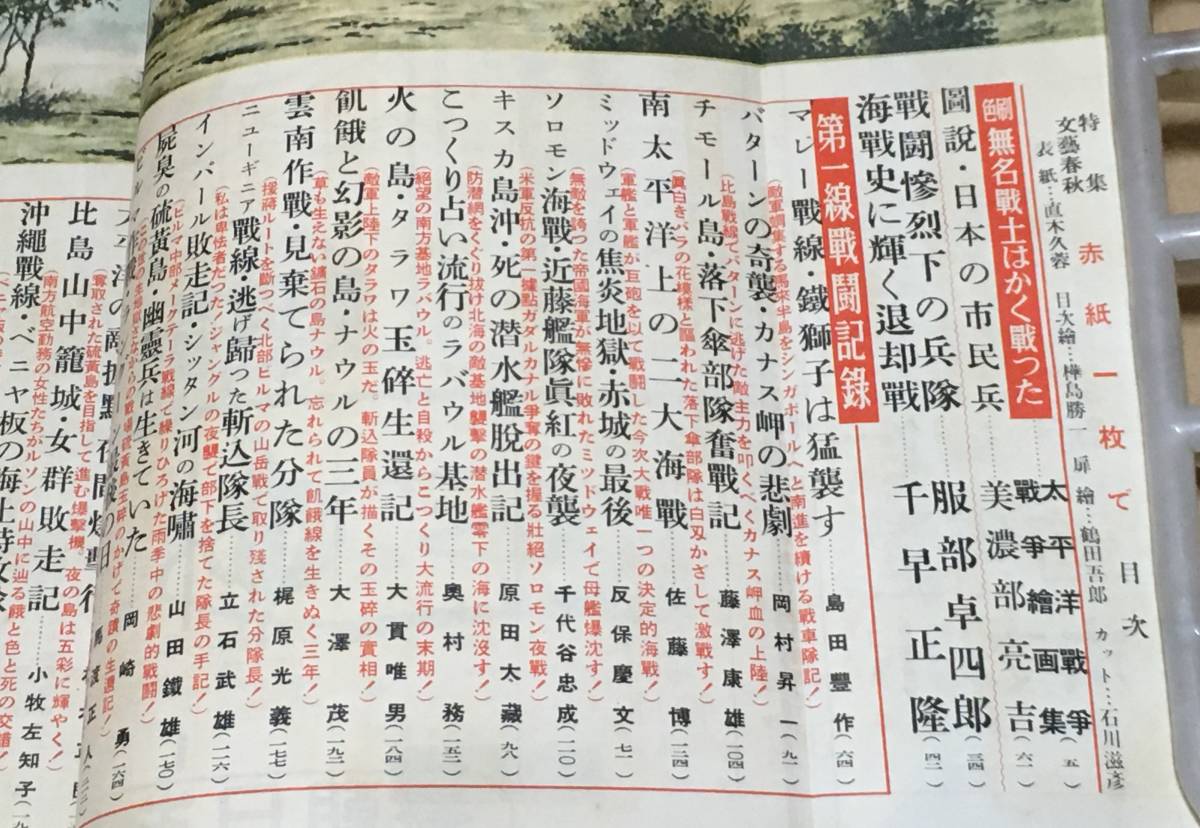 特集
文藝春秋
赤紙一枚で 目次
表紙…直木久蓉 目次繪…樺島勝一 扉繪…鶴田吾郎 カット…石川滋彦
色刷 無名戰士はかく戰つた 太平洋戰爭戰爭繪画集(五)
圖說・日本の市民兵………美濃部亮吉(六一)
戰闘慘烈下の兵隊………服部卓四郎(三四)
海戰史に輝く退却戰………千早正隆(四二)
第一線戰鬪記錄
マレー戰線・鐵獅子は猛襲す………島田豐作(六四)
(敵軍網集する馬來半島をシンガポールへと南進を續ける戰車隊記!)
バターンの奇襲・カナス岬の悲劇………岡村昇一(九一)
(比島戰線でバターンに逃げた敵主力を叩くべくカナス岬血の上陸!)
チモール島・落下傘部隊奮戰記………藤澤康雄(一〇四)
(眞白きバラの花模様と謳われた落下傘部隊は白刄かざして激戰す!)
南太平洋上の二大海戰………佐藤博(一三四)
(軍艦と軍艦が巨砲を以て戰鬪した今次大戰唯一つの決定的海戰!)
ミッドウェイの焦炎地獄・赤城の最後………反保慶文(七一)
(無敵を誇つた帝國海軍が無惨に敗れたミッドウェイで母艦爆沈す!)
ソロモン海戰・近藤艦隊眞紅の夜襲………千代谷忠成(一二〇)
(米軍反抗の第一據點ガダルカナル爭奪の鍵を握る壯絕ソロモン夜戰!)
キスカ島沖・死の潜水艦脫出記………原田大藏(九八)
(防潜網をくぐり抜け北海の敵基地襲擊の潜水艦零下の海に沈沒す!)
こつくり占い流行のラバウル基地………奧村務(一五二)
(絕望の南方基地ラバウル。逃亡と自殺からこつくり大流行の末期!)
火の島・タラワ玉碎生還記………大貫唯男(一八四)
(敵軍上陸下のタラワは火の玉だ。斬込隊員が描くその玉碎の實相!)
飢餓と幻影の島・ナウルの三年………大澤茂(一九二)
(草も生えない鑛石の島ナウル。忘れられて飢餓線を生きぬく三年!)
雲南作戰・見棄てられた分隊………梶原光義(一七七)
(援蔣ルートを斷つべく北部ビルマの山岳戰で取り殘された分隊長!)
ニューギニア戰線・逃げ歸つた斬込隊長………立石武雄(一二六)
(私は卑怯者だつた!ジャングルの夜襲で部下を捨てた隊長の手記!)
インパール敗走記・シッタン河の海嘯………山田鐵雄(一七〇)
(ビルマ中部メークテーラ戰線で繰りひろげた雨季中の悲劇的戰鬪!)
屍臭の硫黃島・幽靈兵は生きていた………岡崎勇(一六四)
比島山中籠城・女群敗走記………小牧左知子
(奪取された硫黃島を目指して進む爆擊機、夜の島は五彩に輝やく!)
(南方航空勤務の女性たちがルソンの山中に辿る餓と色と死の交錯!)
沖繩戰線・ベニヤ板の海上特攻